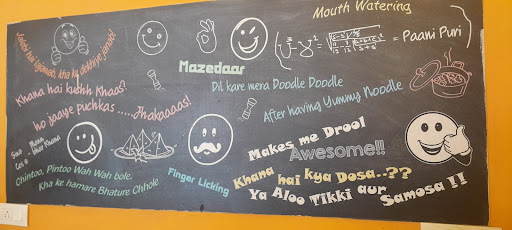 Mouth Watering
= Paani Puri
Mazedaar
Dil kare mera Doodle Doodle
After having Yummy Noodle
Khana hai kuchh Khaas?
ho jaaye puchkas .....Jhakaaaas!
Chintoo, Pintoo Wah Wah bole,
Kha ke hamare Bhature Chhole
Finger Licking
Makes me Drool
Awesome!!
Khana hai kya Dosa..??
Ya Aloo Tikki aur
Samosa !!